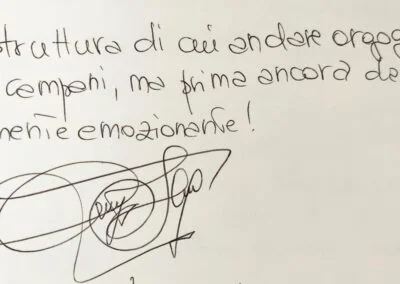 struttura di cui andare orgog
campani, ma prima ancora de
mente emozionante!